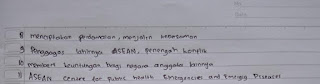 8 menciptakan perdamaian, menjalin kebersamaan
9 Penggagas lahirnya ASEAN, penengah konflik
10 memberi keuntungan bagi negara anggota lainnya
11 ASEAN Centre for Public health Emergencies and Emerging Diseases